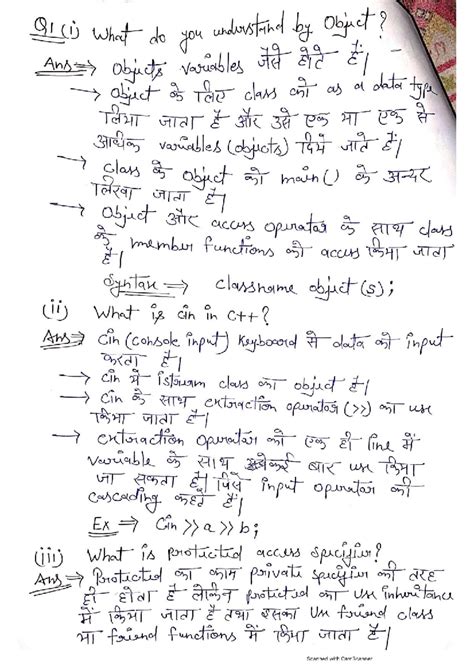 Q1(i) What do you understand by Object?
Ans⇒ Objects variables जैसे होते हैं|
→ Object के लिए class को as a data type
लिया जाता है और उसे एक या एक से
अधिक variables (objects) दिये जाते हैं|
→ class के object को main() के अन्दर
लिखा जाता है|
→ Object और access operator के साथ class
के member functions को access किया जाता
है|
Syntax ⇒ classname object(s);
(ii) What is cin in C++?
Ans⇒ Cin (console input) keyboard से data को input
करता है|
→ Cin में istream class का object है|
→ Cin के साथ extraction operator (>>) का use
किया जाता है|
→ extraction operator को एक ही line में
variable के साथ कई बार use किया
जा सकता है| जिसे input operator की
cascading कहते हैं|
Ex ⇒ Cin >> a >> b;
(iii) What is protected access specifier?
Ans⇒ Protected का काम private specifier की तरह
ही होता है लेकिन protected का use inheritance
में किया जाता है तथा इसका Use friend class
या friend functions में किया जाता है|
Scanned with CamScanner